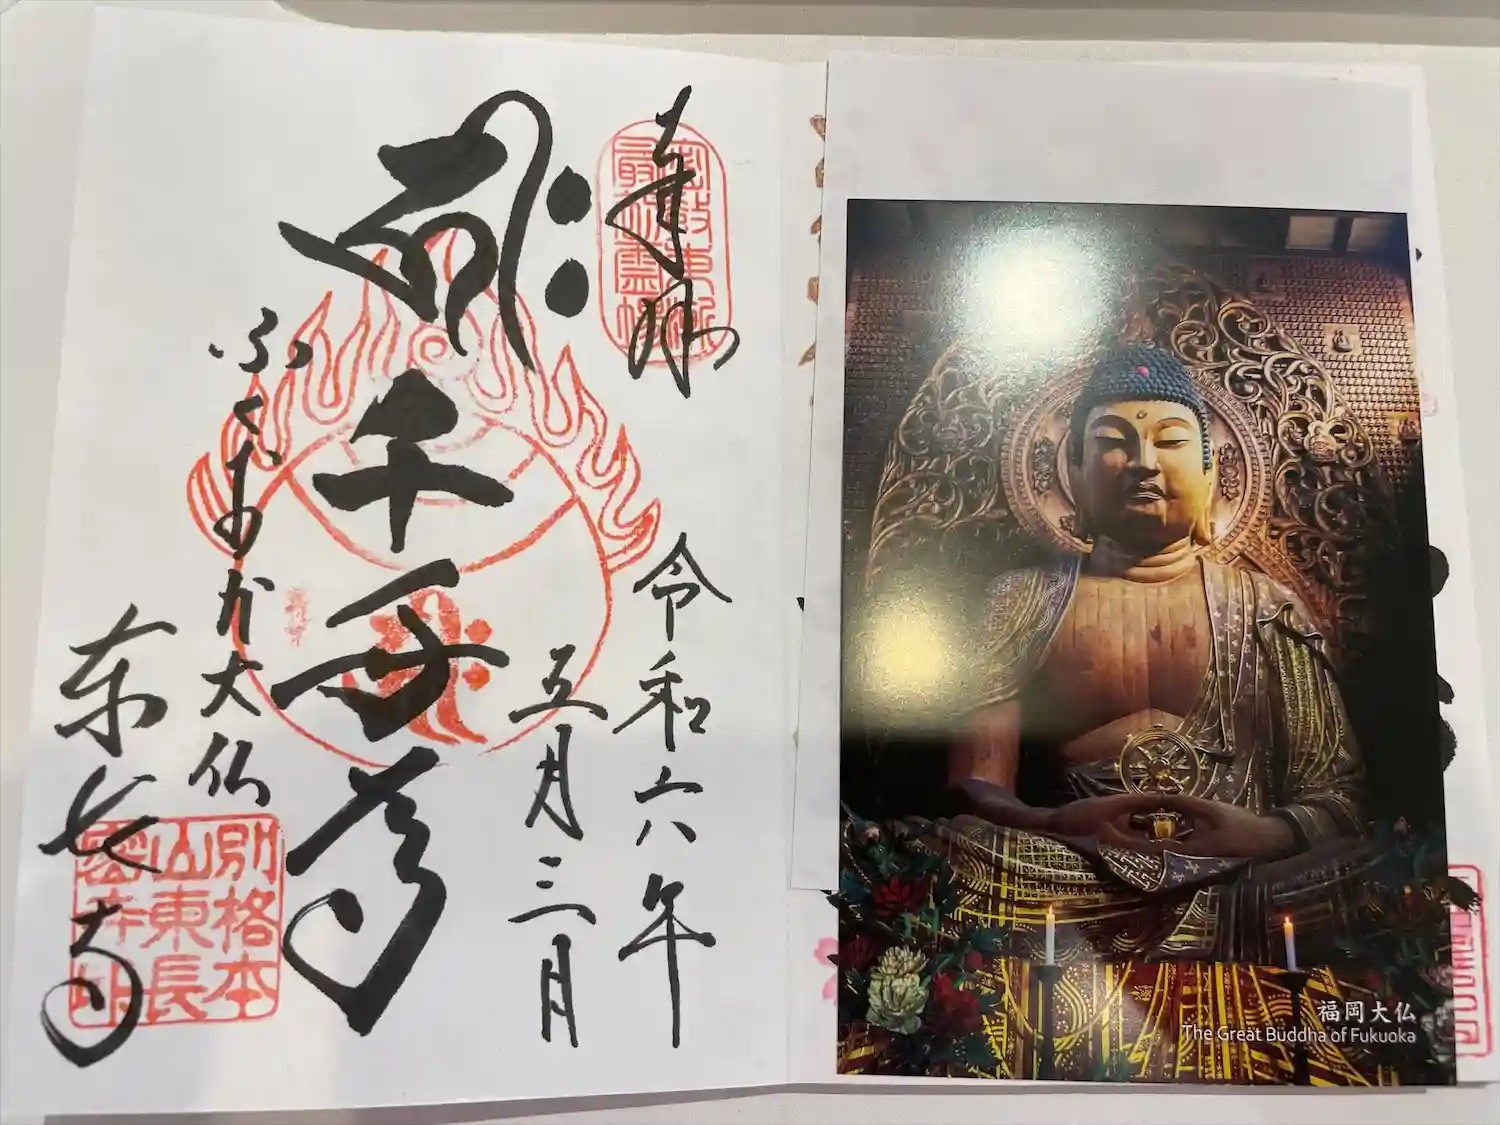 奉拝
密教東漸
最初霊場
令和六年
五月三日
千手尊
ふくおか大仏
東長寺
別格本
山東長
密寺印
福岡大仏
The Great Buddha of Fukuoka